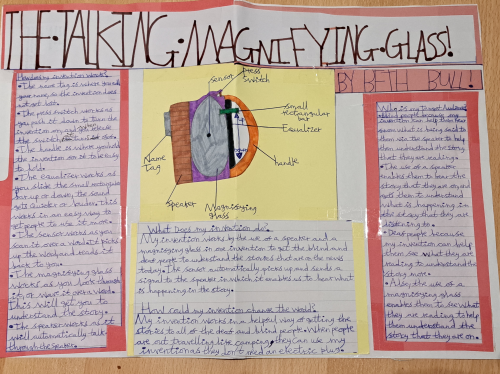 THE·TALKING·MAGNIFYING·GLASS!
BY BETH BULL!
How does my invention work?
• The name tag is where you
your name, so the invention does
not get lost.
• The press switch works as
you push it down to turn the
invention on, and
the switch
• The handle is where you hold
the invention on
to hold.
• The equaliser works as
you slide the small rectangular
bar up or down, the sound
gets quieter or louder, this
works in an easy way to
get people to use it more.
• The sensor works as you
scan it over a word it picks
up the word and reads it
back to you.
• The magnifying glass
works as you look through
it, or wave it over a word.
This will get you to
understand the story.
• The speaker works as it
will automatically talk
through the speaker.
sensor
press
switch
small
rectangular
bar
Equaliser
handle
Name
Tag
speaker
Magnifying
glass
What Does my invention do?
My invention works by the use of a speaker and a
magnifying glass in one invention to get the blind and
deaf people to understand the stories that are in the news
today. The sensor automatically picks up and sends a
signal to the speaker in which it enables us to hear what
is happening in the story.
How could my invention change the world?
My invention works in a helpful way of getting the
stories to all of the deaf and blind people. When people
are out travelling like camping, they can use my
invention as they don't need an electric plug.
Who is my Target Audience?
• blind people because my
invention can help them hear
what is being said to
them via the speaker to help
them understand the story
that they are reading.
• The speaker
enables them to hear the
story that they are on, and
gets them to understand
what is happening in
the story that they are
listening to.
• Deaf people because
my invention can help
them see what they are
reading to understand the
story more.
• Also, the use of a
magnifying glass
enables them to see what
they are reading to help
them understand the
story that they are on.